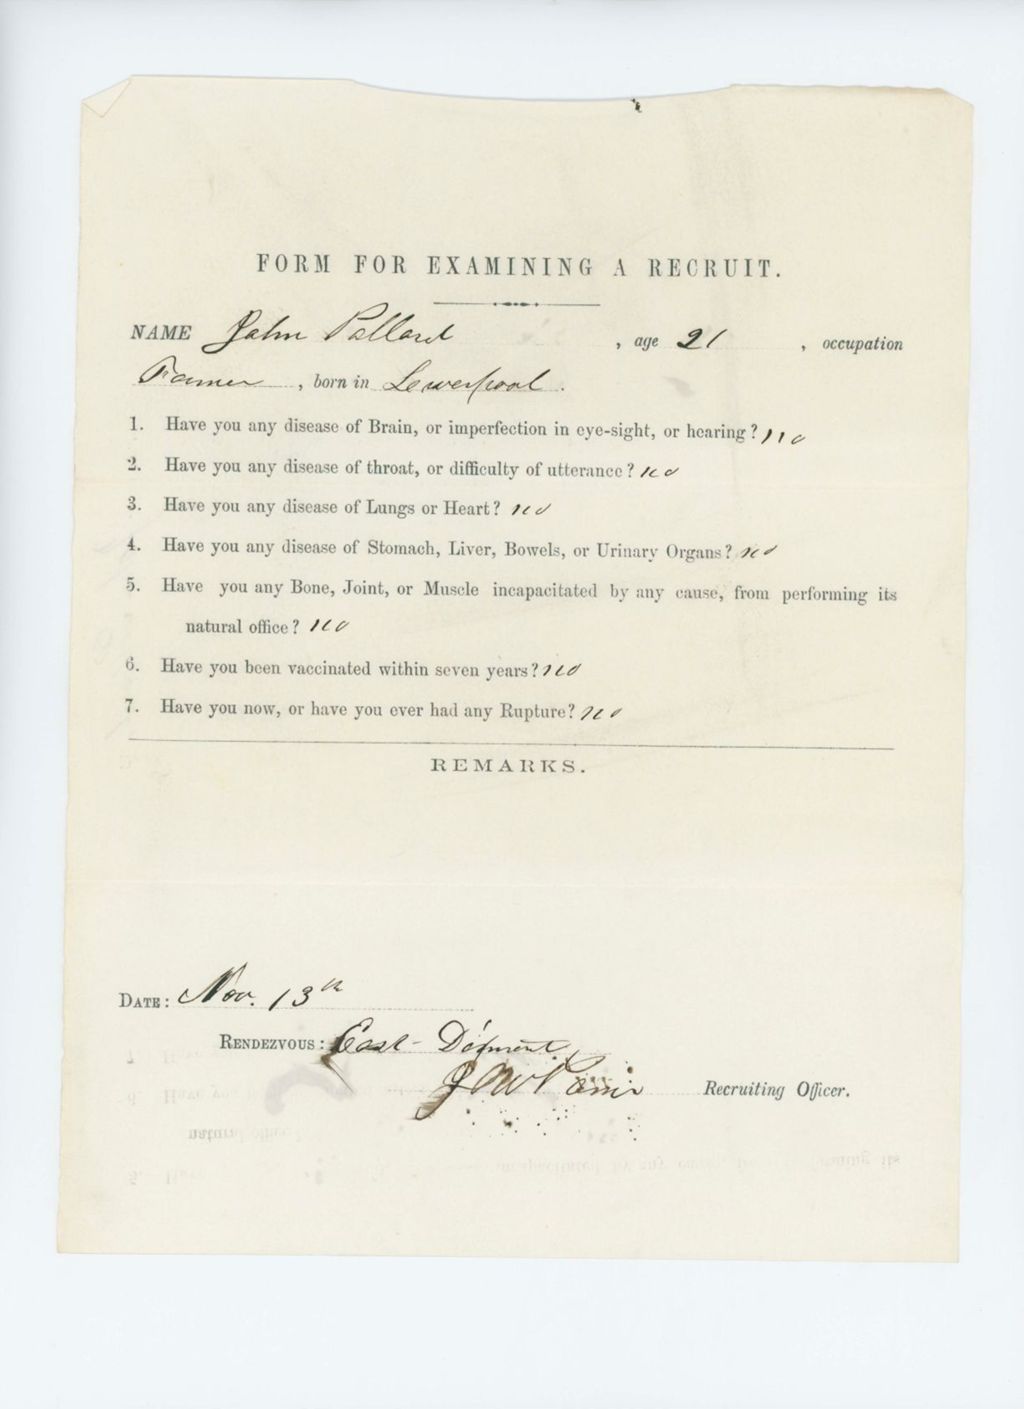 FORM FOR EXAMINING A RECRUIT.
NAME John Pollard , age 21 , occupation
Farmer , born in Lewerpool .
1. Have you any disease of Brain, or imperfection in eye-sight, or hearing ? no
2. Have you any disease of throat, or difficulty of utterance ? no
3. Have you any disease of Lungs or Heart ? no
4. Have you any disease of Stomach, Liver, Bowels, or Urinary Organs ? no
5. Have you any Bone, Joint, or Muscle incapacitated by any cause, from performing its
natural office ? no
6. Have you been vaccinated within seven years ? no
7. Have you now, or have you ever had any Rupture ? no
REMARKS.
DATE : Nov. 13th
RENDEZVOUS : East-
J W Recruiting Officer.